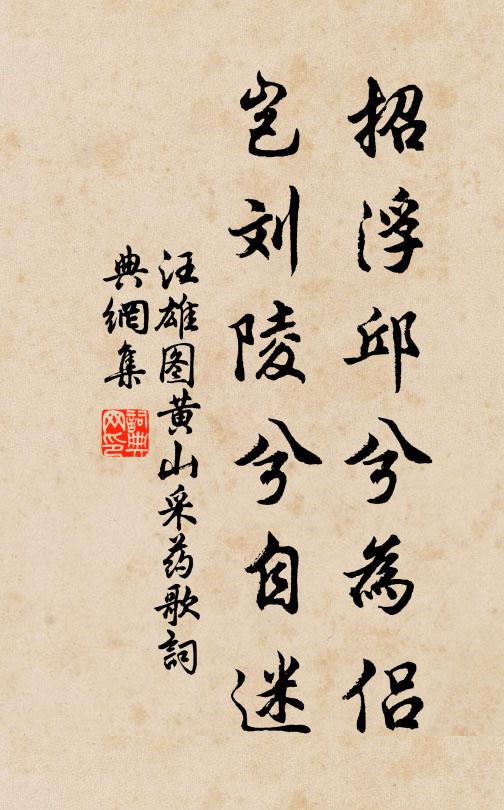 招浮邱兮為侶
岂刘陵兮自迷
汪雄图黄山采药歌詞
典網集
詞典网印